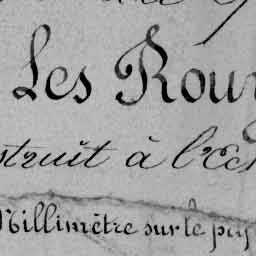 Les Rou
struit à l'Es
Millimètre sur le puy